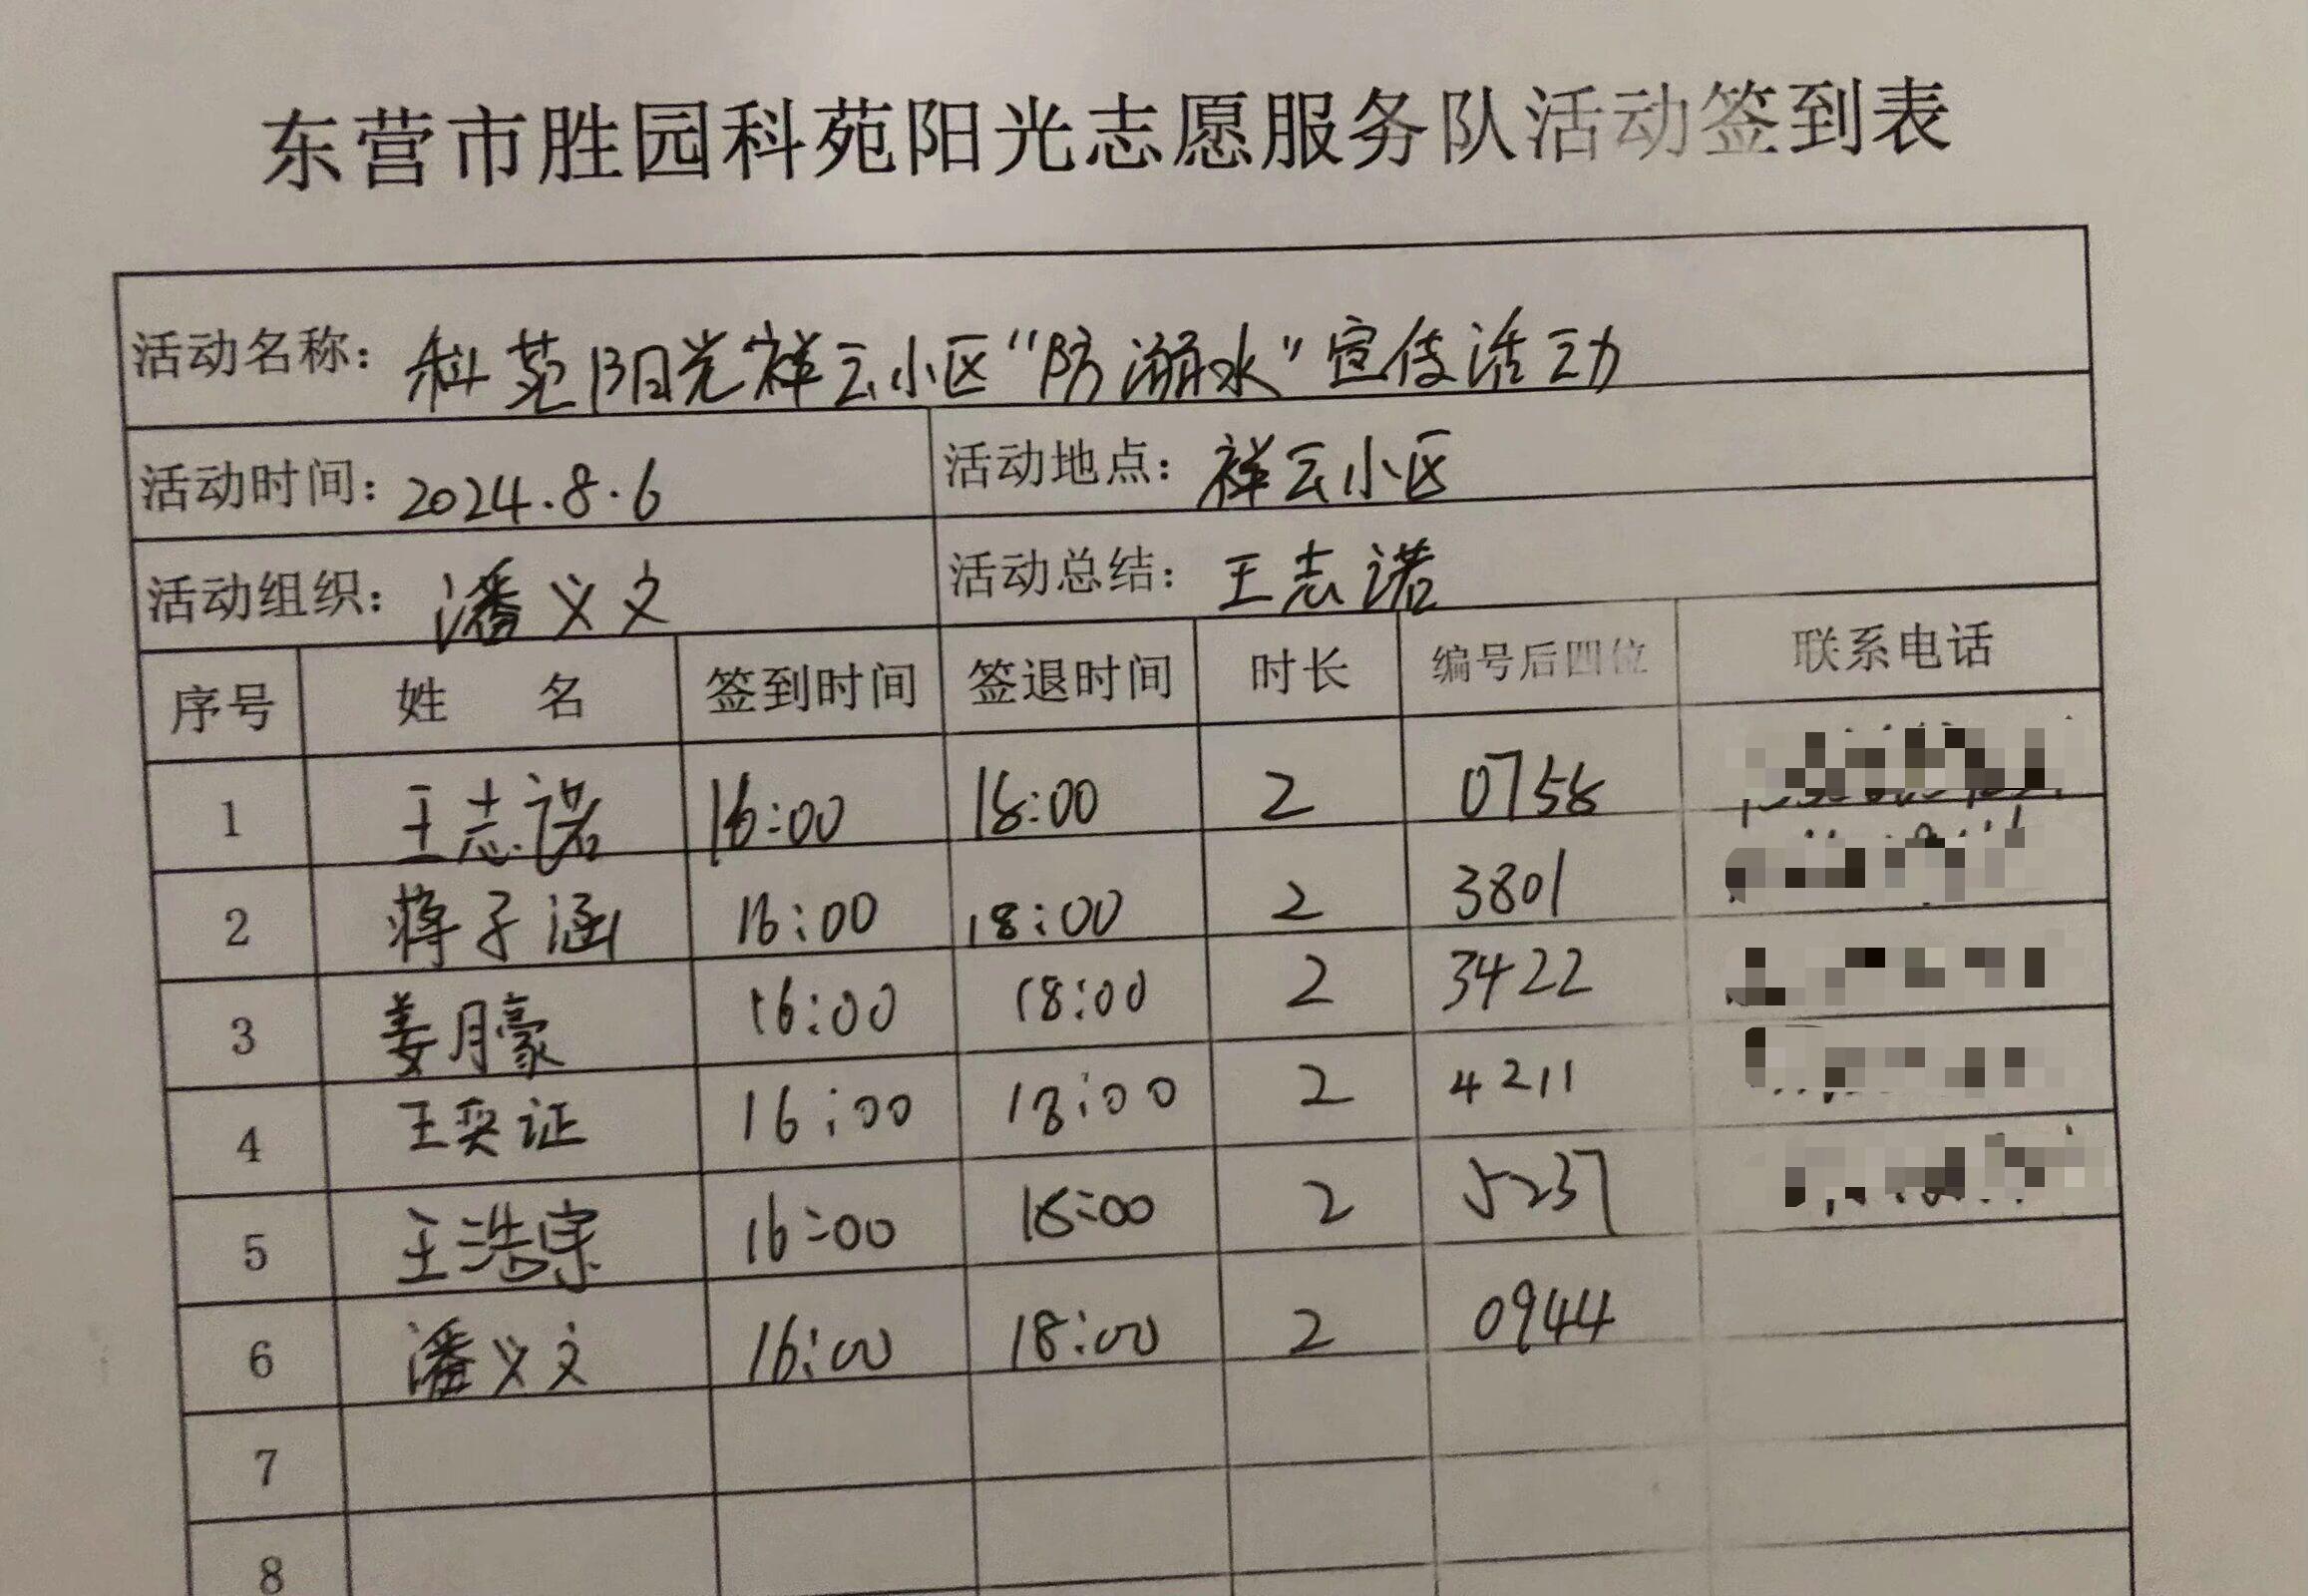 东营市胜园科苑阳光志愿服务队活动签到表
活动名称：科苑阳光祥云小区“防溺水”宣传活动
活动时间：2024.8.6 活动地点：祥云小区
活动组织：潘义文 活动总结：王志诺
序号 姓 名 签到时间 签退时间 时长 编号后四位 联系电话
1 王志诺 16:00 18:00 2 0758
2 蒋子涵 16:00 18:00 2 3801
3 姜月豪 16:00 18:00 2 3422
4 王奕证 16:00 18:00 2 4211
5 王浩宗 16:00 18:00 2 5237
6 潘义文 16:00 18:00 2 0944
7
8